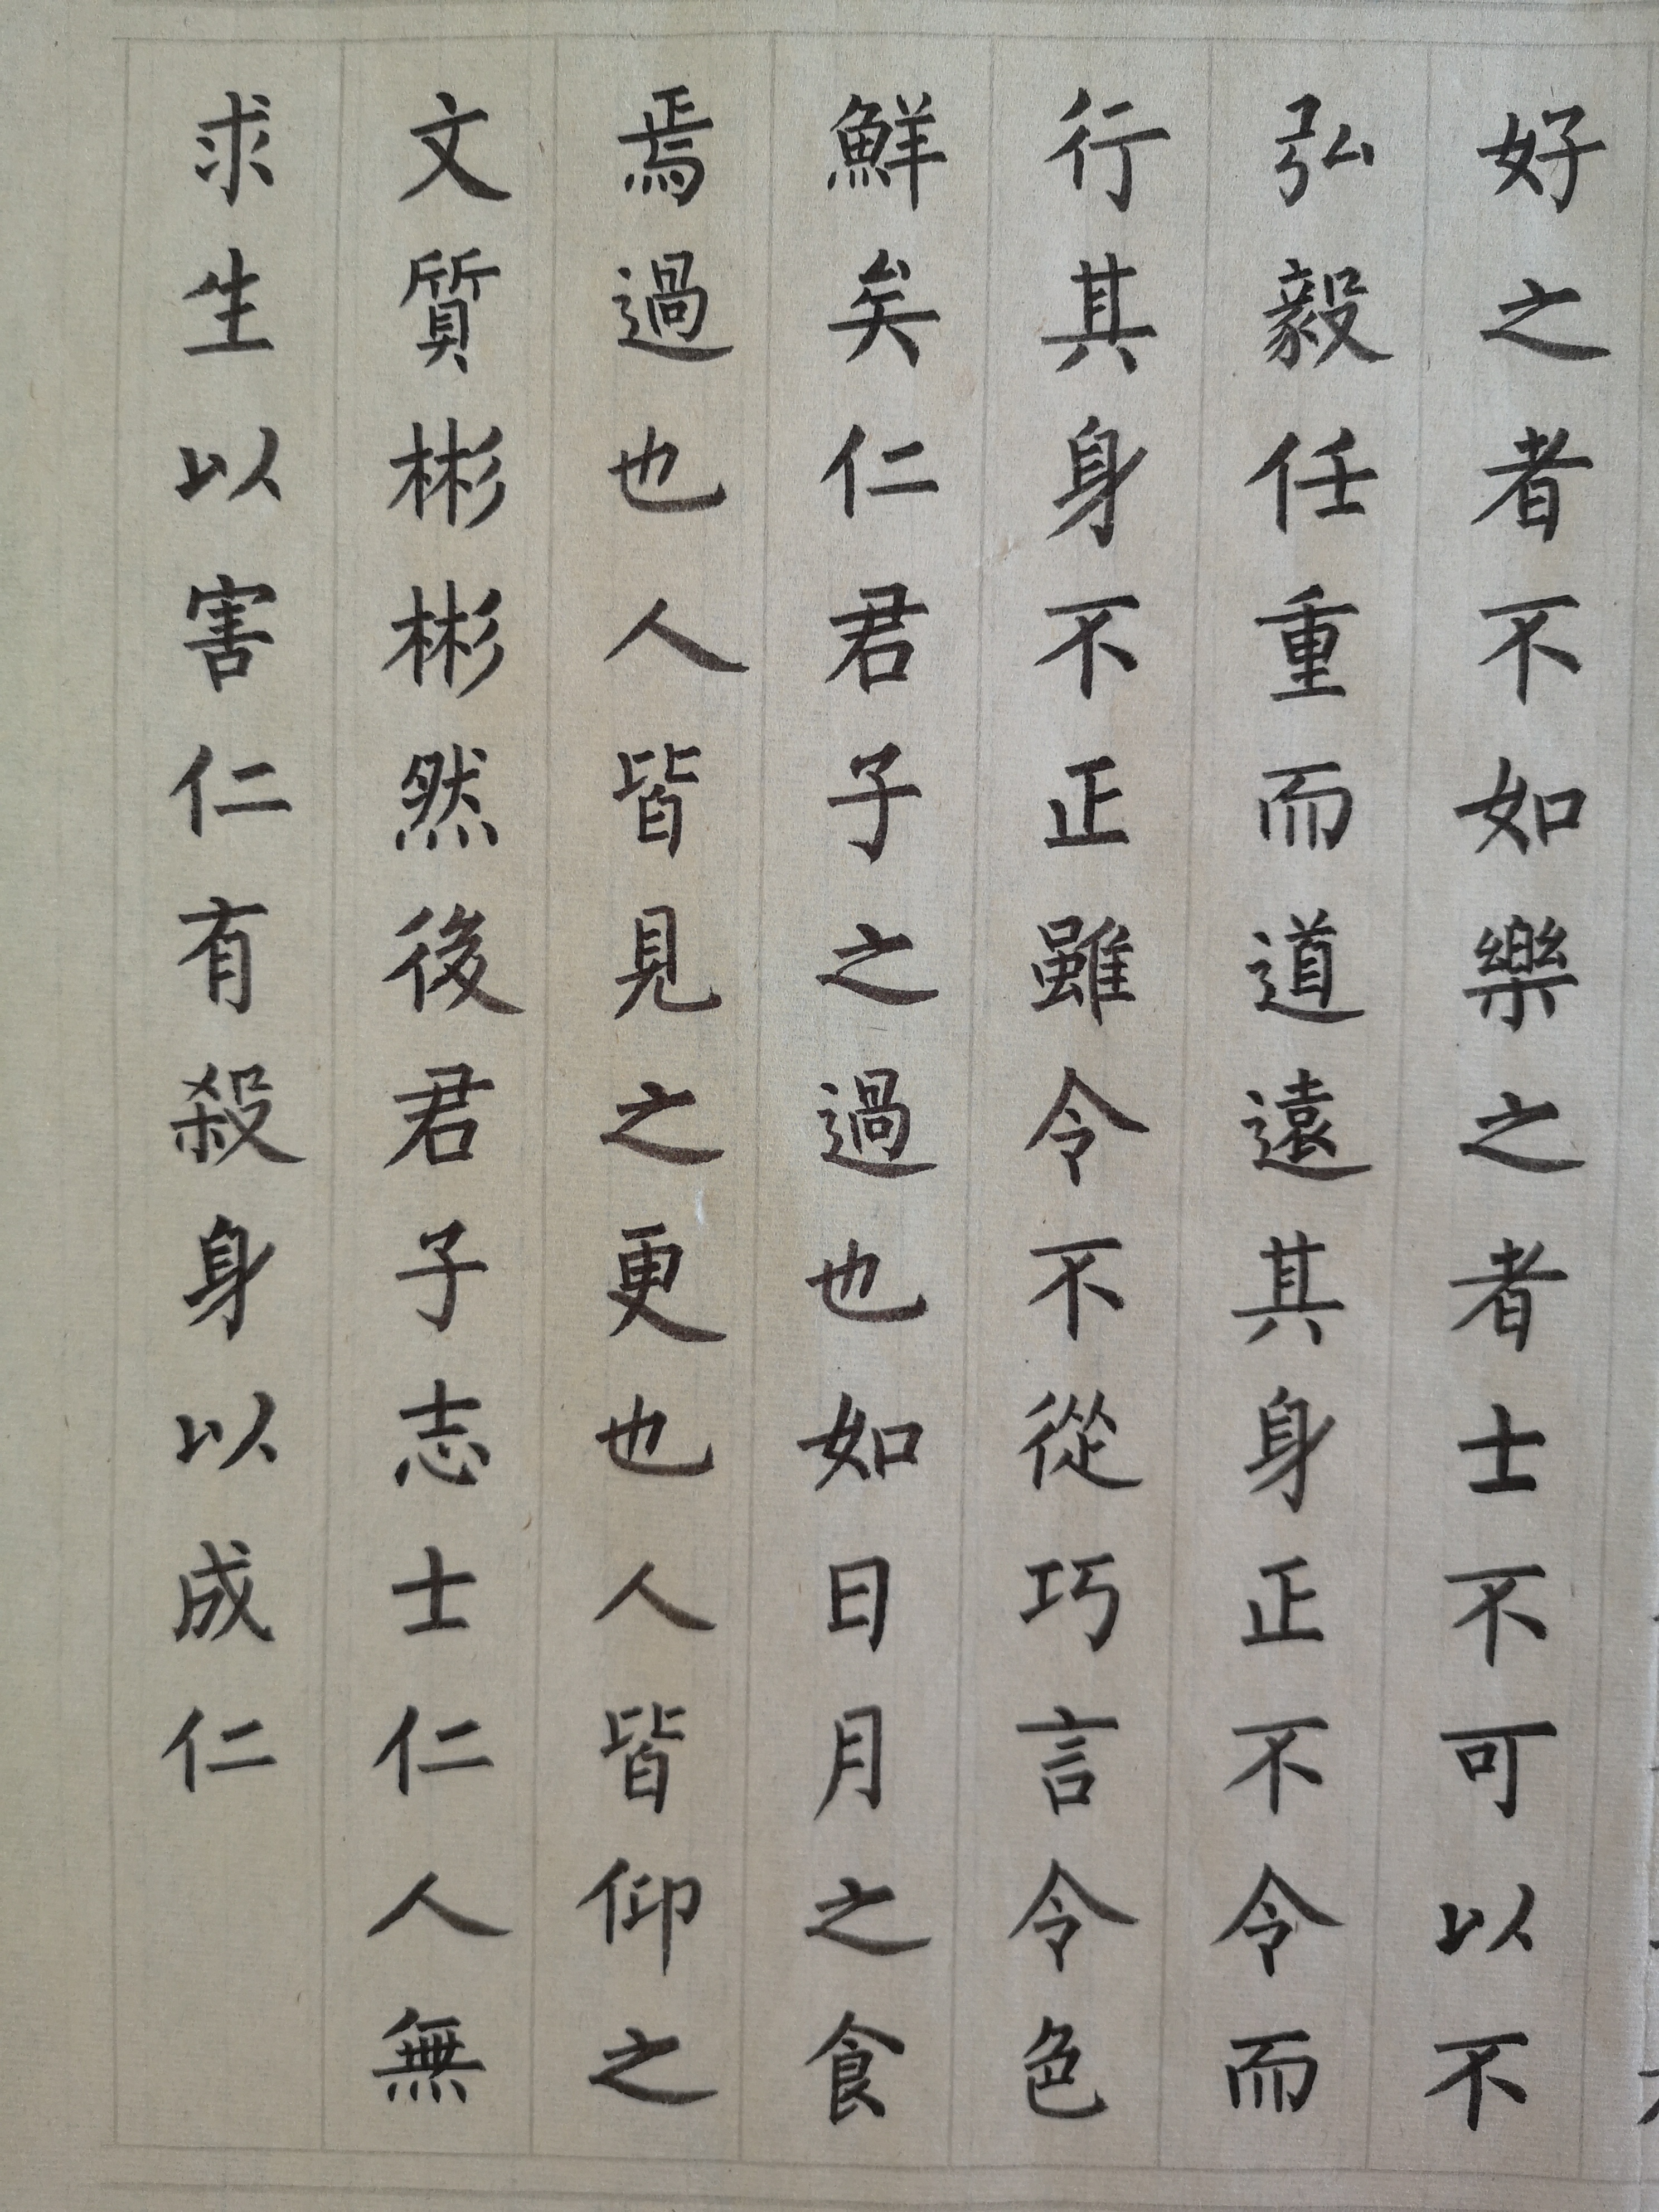 好之者不如樂之者士不可以不
弘毅任重而道遠其身正不令而
行其身不正雖令不從巧言令色
鮮矣仁君子之過也如日月之食
焉過也人皆見之更也人皆仰之
文質彬彬然後君子志士仁人無
求生以害仁有殺身以成仁